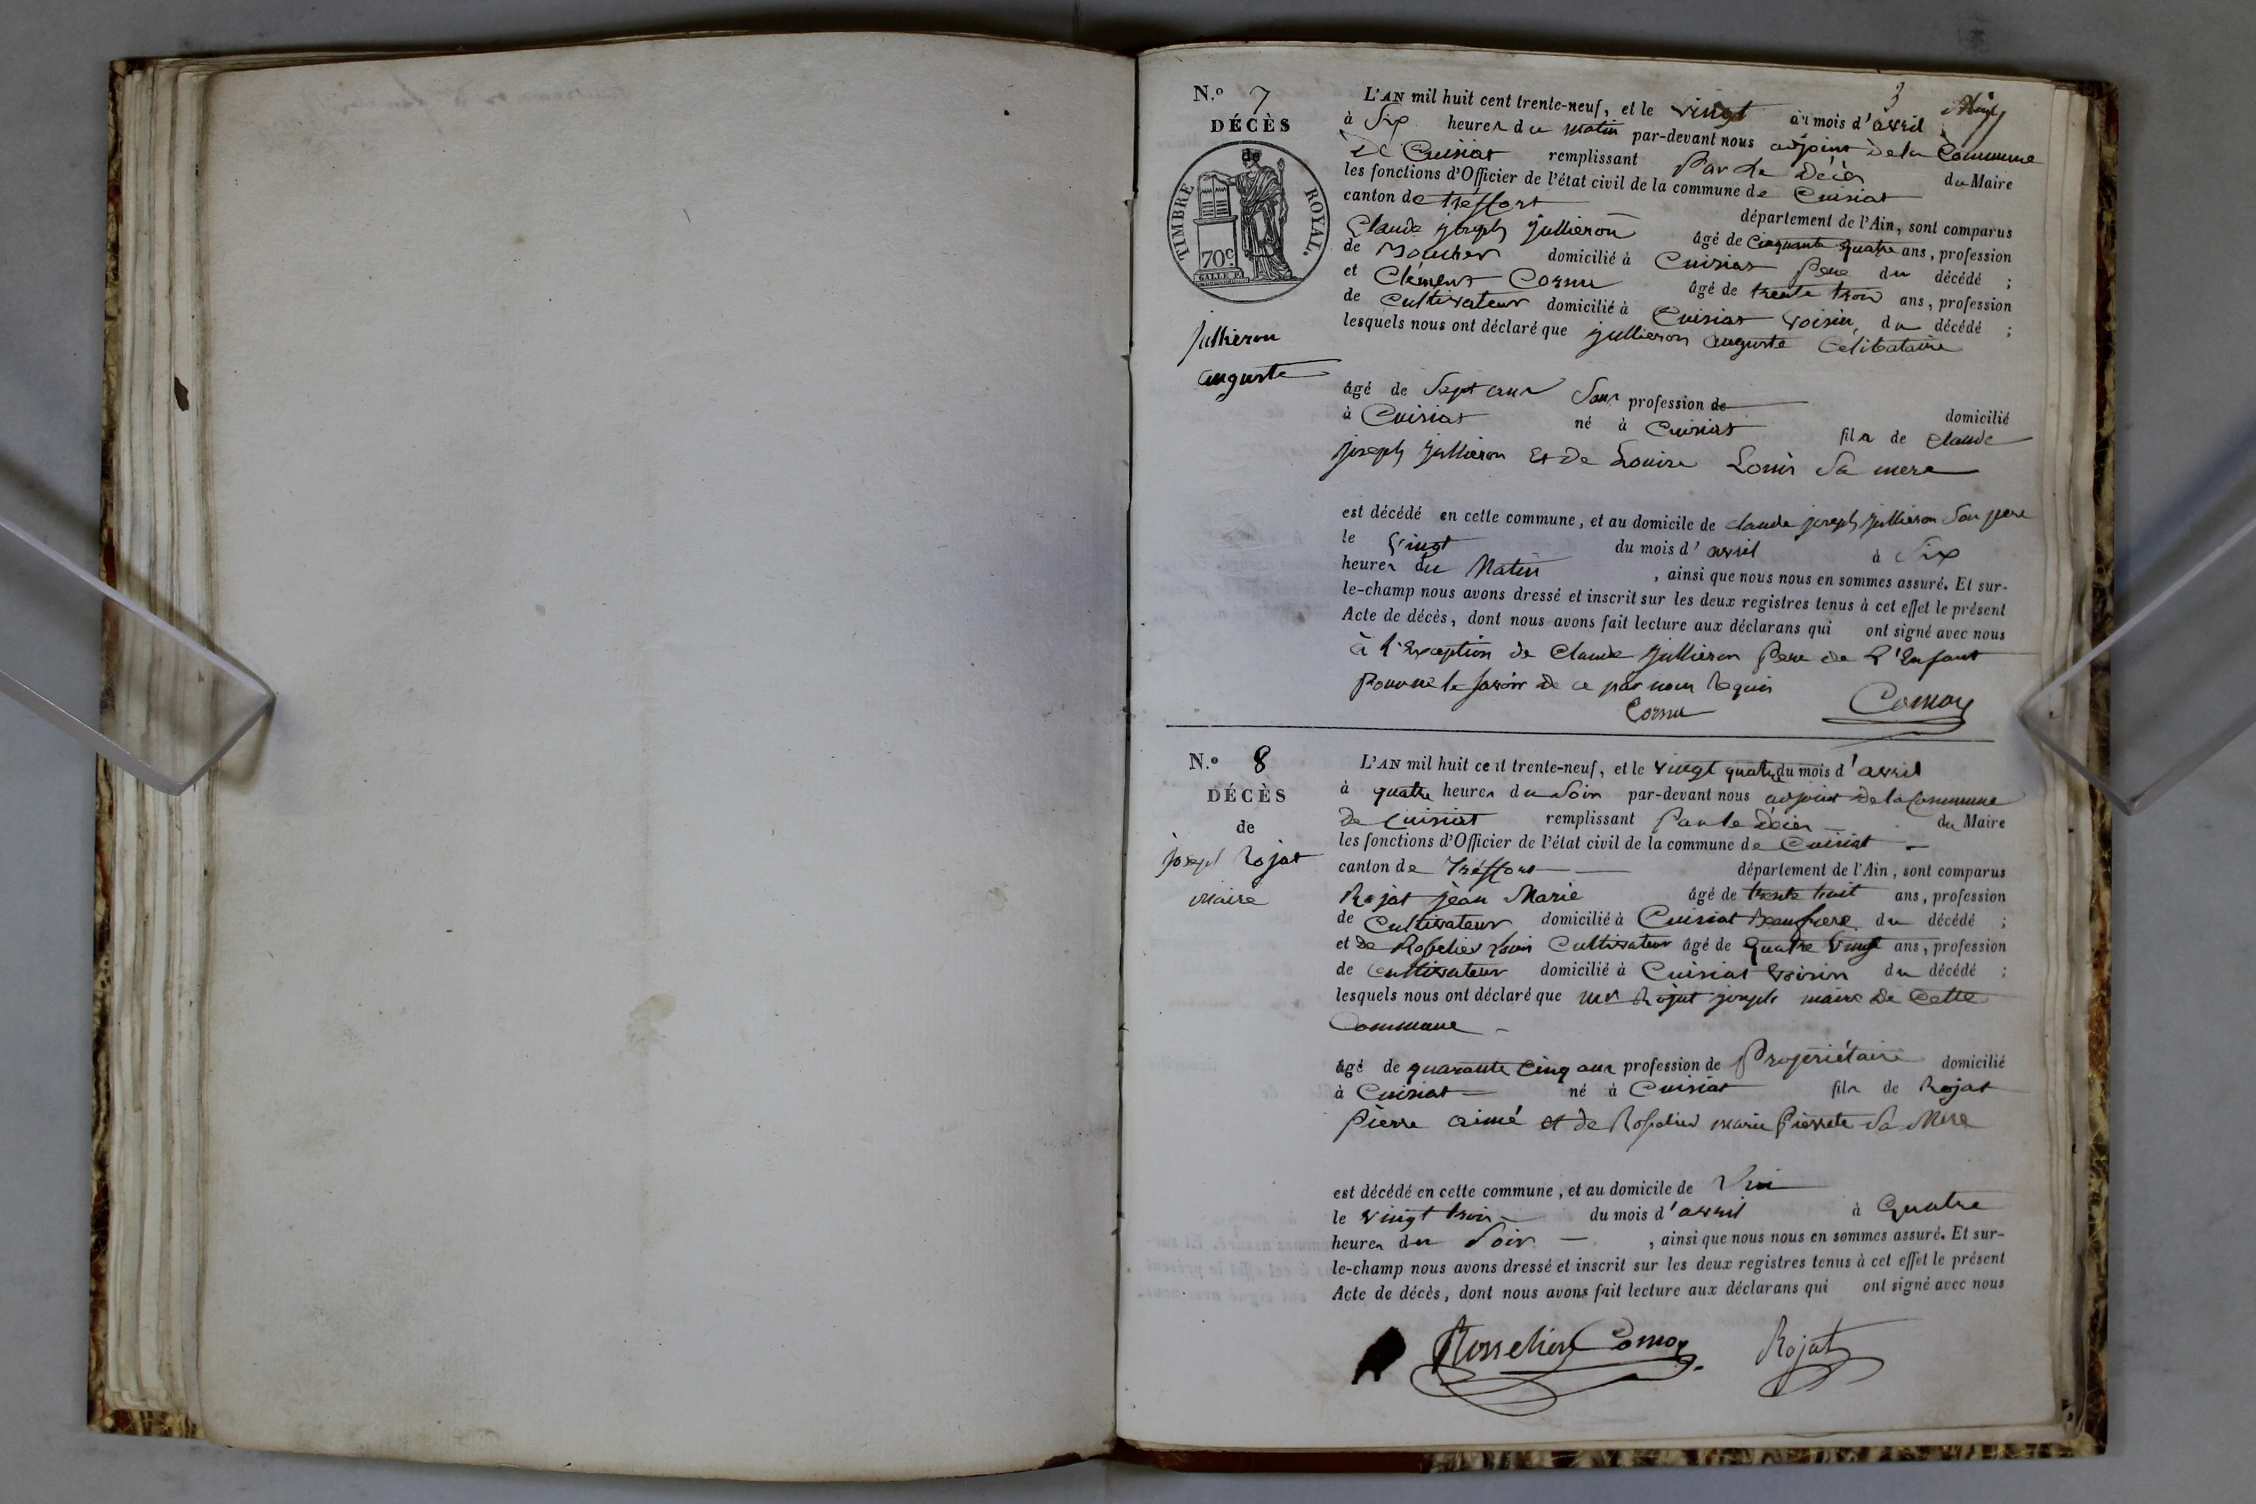 3
N.º 7
DÉCÈS
TIMBRE ROYAL.
70 c
Jullieron
auguste
L'AN mil huit cent trente-neuf, et le vingt du mois d'avril
à Six heures du matin par-devant nous adjoint de la Commune
De Cuisiat remplissant Par le Décès du Maire
les fonctions d'Officier de l'état civil de la commune de Cuisiat
canton de tréffort département de l'Ain, sont comparus
Claude joseph jullieron âgé de Cinquante quatre ans, profession
de domicilié à Cuisiat Pere du décédé ;
et Clément Cornu âgé de trente trois ans, profession
de Cultivateur domicilié à Cuisiat voisin du décédé ;
lesquels nous ont déclaré que jullieron auguste Celibataire
âgé de Sept ans Sans profession de domicilié
à Cuisiat né à Cuisiat fils de Claude
joseph jullieron Et De Louise Louis Sa mere
est décédé en cette commune, et au domicile de claude joseph jullieron Son pere
le vingt du mois d'avril à Six
heures du Matin , ainsi que nous nous en sommes assuré. Et sur-
le-champ nous avons dressé et inscrit sur les deux registres tenus à cet effet le présent
Acte de décès, dont nous avons fait lecture aux déclarans qui ont signé avec nous
à l'Exception de Claude jullieron Pere de L'Enfant
Pour ne le savoir de ce par nous Requis
Cornu Comoy
N.º 8
DÉCÈS
de
joseph Rojat
Maire
L'AN mil huit cent trente-neuf, et le vingt quatre du mois d'avril
à quatre heures du Soir par-devant nous adjoint De la Commune
De Cuisiat remplissant Par le Décès du Maire
les fonctions d'Officier de l'état civil de la commune de Cuisiat
canton de Tréffort département de l'Ain, sont comparus
Rojat jean Marie âgé de trente huit ans, profession
de Cultivateur domicilié à Cuisiat Beaufrere du décédé ;
et De Rosselier Louis Cultivateur âgé de Quatre Vingt ans, profession
de Cultivateur domicilié à Cuisiat voisin du décédé ;
lesquels nous ont déclaré que Mr Rojat joseph maire De Cette
Commune
âgé de quarante Cinq ans profession de Propriétaire domicilié
à Cuisiat né à Cuisiat fils de Rojat
Pierre aimé et de Rosselier marie Pierrete Sa Mere
est décédé en cette commune, et au domicile de
le vingt trois du mois d'avril à Quatre
heures du Soir , ainsi que nous nous en sommes assuré. Et sur-
le-champ nous avons dressé et inscrit sur les deux registres tenus à cet effet le présent
Acte de décès, dont nous avons fait lecture aux déclarans qui ont signé avec nous
Rosselier Comoy Rojat